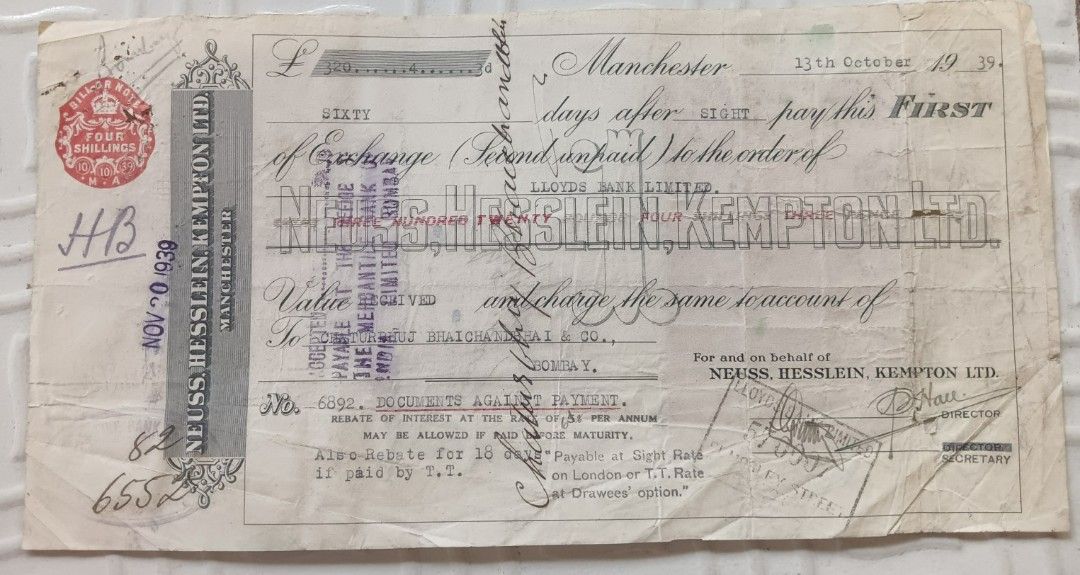 £ 320......4......3d Manchester 13th October 19 39.
SIXTY days after SIGHT pay this FIRST
of Exchange (Second unpaid) to the order of
LLOYDS BANK LIMITED.
THREE HUNDRED TWENTY POUNDS FOUR SHILLINGS THREE PENCE
NEUSS, HESSLEIN, KEMPTON LTD.
Value RECEIVED and charge the same to account of
To CHTURBHUJ BHAICHANDBHAI & CO.,
BOMBAY.
For and on behalf of
NEUSS, HESSLEIN, KEMPTON LTD.
DIRECTOR
DIRECTOR
SECRETARY
No. 6892. DOCUMENTS AGAINST PAYMENT.
REBATE OF INTEREST AT THE RATE OF 5% PER ANNUM
MAY BE ALLOWED IF PAID BEFORE MATURITY.
Also Rebate for 18 days
if paid by T.T.
"Payable at Sight Rate
on London or T.T. Rate
at Drawees' option."
BILL OR NOTE
FOUR
SHILLINGS
10 10 39
M.A.
HB
NOV 20 1939
NEUSS, HESSLEIN, KEMPTON LTD.
MANCHESTER
ACCEPTED
PAYABLE AT THE
THE MERCANTILE BANK OF
INDIA LIMITED BOMBAY
LLOYDS BANK LIMITED
STREET
82
6552